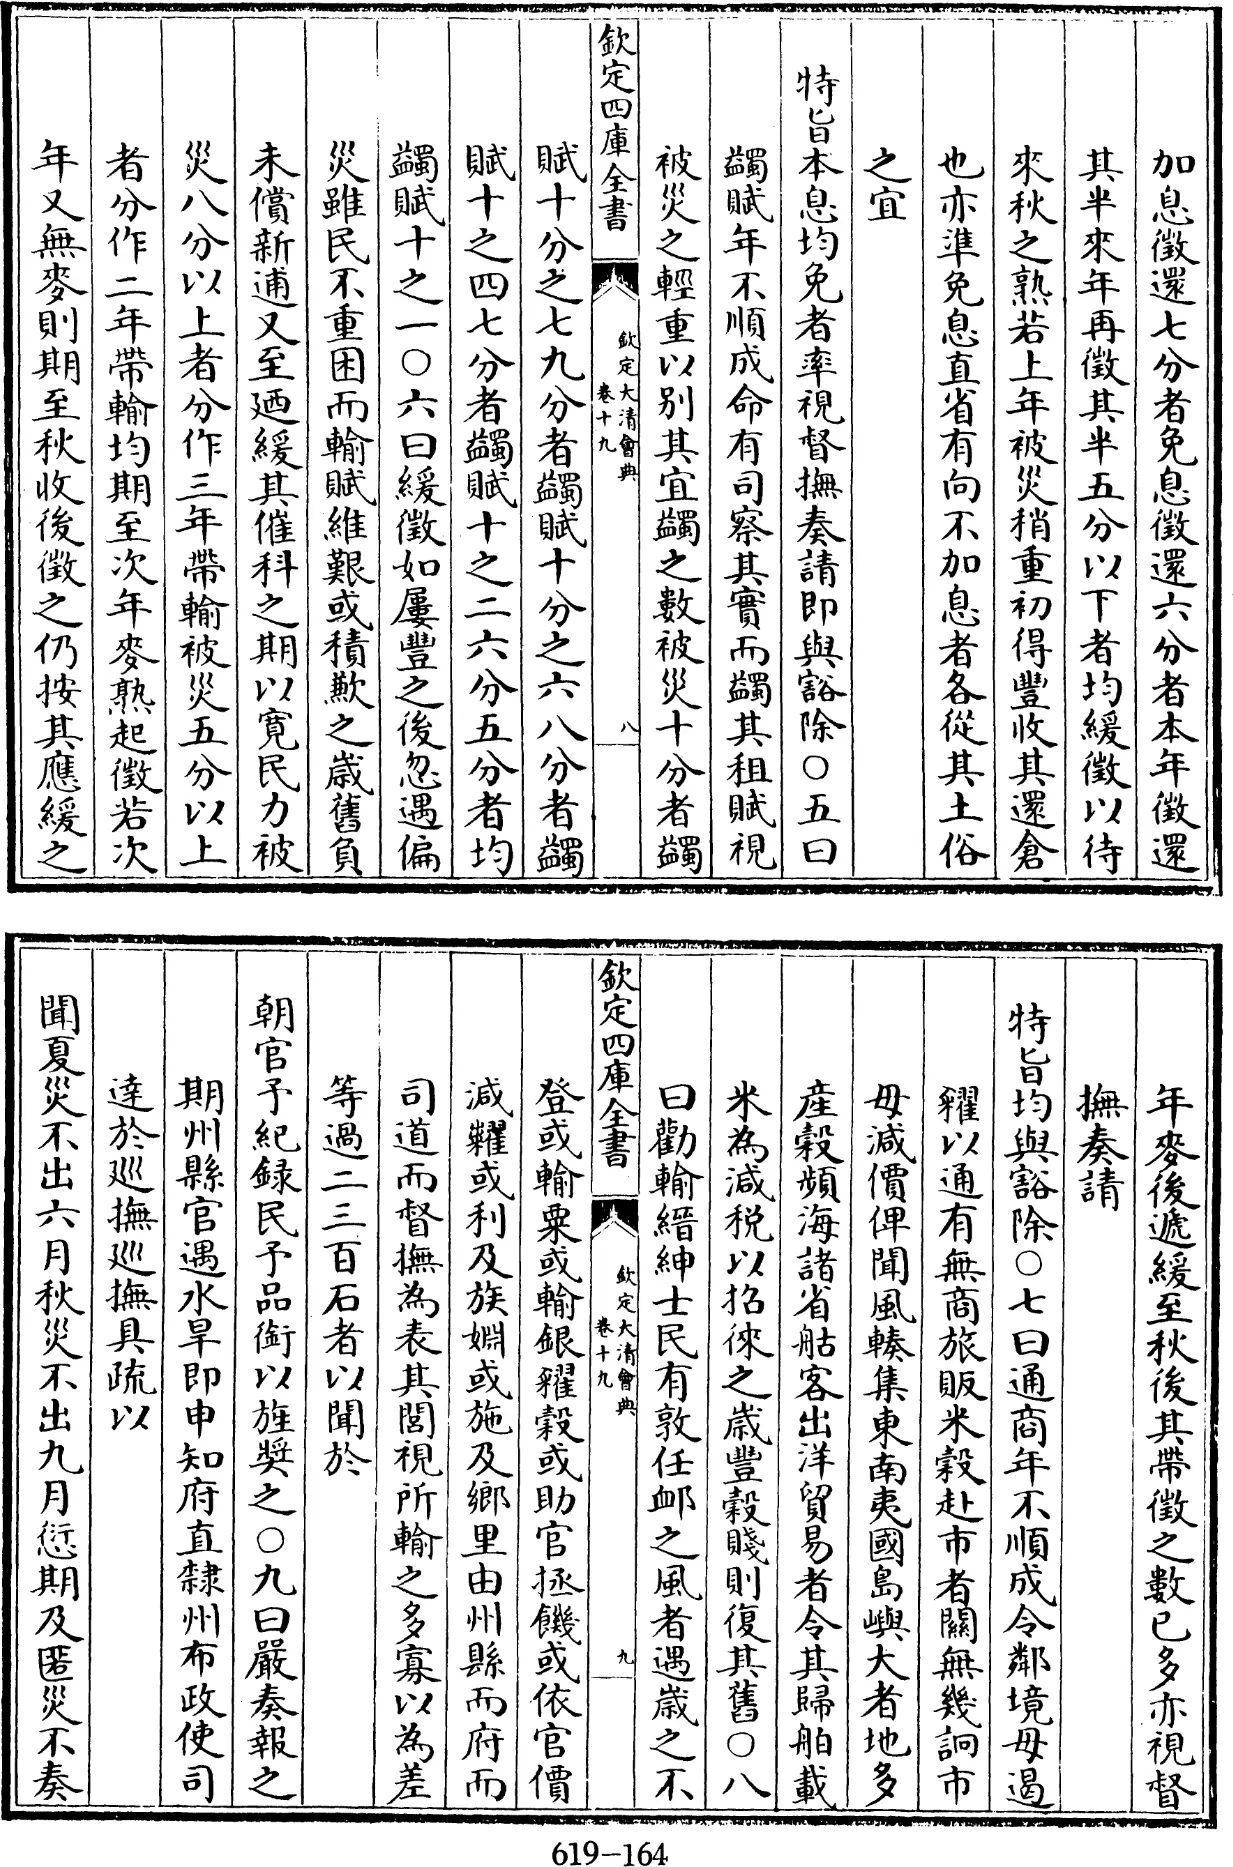 加息徵還七分者免息徵還六分者本年徵還
其半來年再徵其半五分以下者均緩徵以待
來秋之熟若上年被災稍重初得豐收其還倉
也亦準免息直省有向不加息者各從其土俗
之宜
特旨本息均免者率視督撫奏請即與豁除〇五曰
蠲賦年不順成命有司察其實而蠲其租賦視
被災之輕重以別其宜蠲之數被災十分者蠲
欽定四庫全書
欽定大清會典
卷十九
八
賦十分之七九分者蠲賦十分之六八分者蠲
賦十之四七分者蠲賦十之二六分五分者均
蠲賦十之一〇六曰緩徵如屢豐之後忽遇偏
災雖民不重困而輸賦維艱或積歉之歲舊負
未償新逋又至廼緩其催科之期以寛民力被
災八分以上者分作三年帶輸被災五分以上
者分作二年帶輸均期至次年麥熟起徵若次
年又無麥則期至秋收後徵之仍按其應緩之
年麥後遞緩至秋後其帶徵之數已多亦視督
撫奏請
特旨均與豁除〇七曰通商年不順成令鄰境毋遏
糴以通有無商旅販米穀赴市者關無幾詗市
毋減價俾聞風輳集東南夷國島嶼大者地多
產穀頻海諸省舡客出洋貿易者令其歸舶載
米為減稅以招徠之歲豐穀賤則復其舊〇八
曰勸輸縉紳士民有敦任䘏之風者遇歲之不
欽定四庫全書
欽定大清會典
卷十九
九
登或輸粟或輸銀糴穀或助官拯饑或依官價
減糶或利及族婣或施及鄉里由州縣而府而
司道而督撫為表其閭視所輸之多寡以為差
等過二三百石者以聞於
朝官予紀録民予品銜以旌奬之〇九曰嚴奏報之
期州縣官遇水旱即申知府直隸州布政使司
達於廵撫廵撫具疏以
聞夏災不出六月秋災不出九月愆期及匿災不奏
619-164